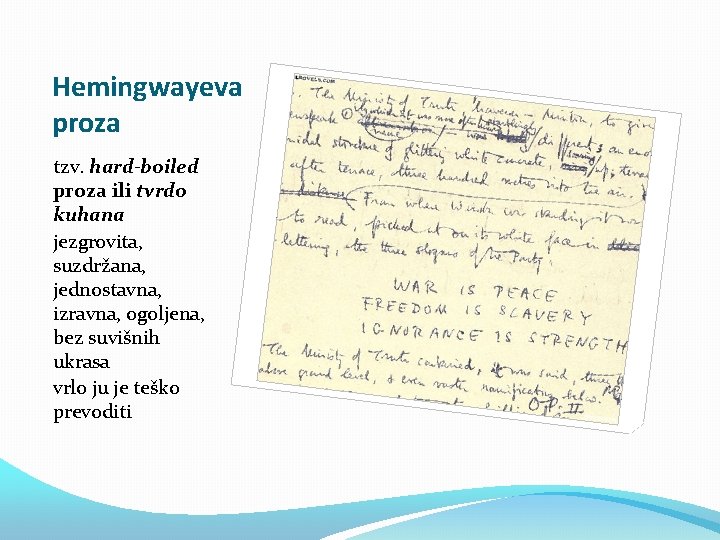 Hemingwayeva
proza
tzv. hard-boiled
proza ili tvrdo
kuhana
jezgrovita,
suzdržana,
jednostavna,
izravna, ogoljena,
bez suvišnih
ukrasa
vrlo ju je teško
prevoditi
The Ministry of Truth – Minitrue, to give
was more often
/di
an enor
midal structure of glittering white concrete, up, terrace
after terrace, three hundred metres into the air.
From where Winston was standing it was
to read, picked out on its white face in
lettering, the three slogans of the Party:
WAR IS PEACE
FREEDOM IS SLAVERY
IGNORANCE IS STRENGTH
The Ministry of Truth contained, it was said, three
above ground level, & even vaster ramifications below.
O.P. II